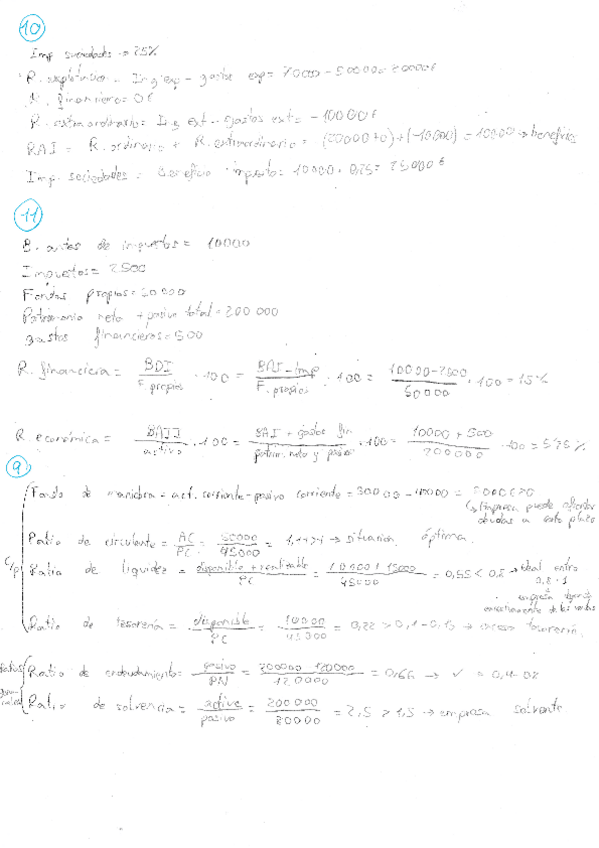 10
Imp sociedades → 25%
R. explotación = Ing exp - gastos exp = 70000 - 50000 = 20000€
R. financiero = 0€
R. extraordinario = Ing ext - gastos ext = -10000€
RAI = R. ordinario + R. extraordinario = (20000+0)+(-10000) = 10000 → beneficios
Imp. sociedades = Beneficio · impuesto = 10000 · 0,25 = 2500€
11
B. antes de impuestos = 10000
Impuestos = 2500
Fondos propios = 50000
Patrimonio neto + pasivo total = 200 000
gastos financieros = 500
R. financiera = BDI / F. propios · 100 = BAI - Imp / F. propios · 100 = 10000 - 2500 / 50000 · 100 = 15%
R. económica = BAII / activo · 100 = BAI + gastos fin / patrim. neto y pasivo · 100 = 10000 + 500 / 200000 · 100 = 5,25%
9
Fondo de maniobra = act. corriente - pasivo corriente =
→ empresa puede afrontar
deudas a corto plazo
c/p
Ratio de circulante = AC / PC = 50000 / 45000 = 1,11 > 1 → situación óptima
Ratio de liquidez = disponible + realizable / PC = 10000 + 15000 / 45000 = 0,55 < 0,8 → ideal entre
0,8 - 1
Ratio de tesorería = disponible / PC = 10000 / 45000 = 0,22 > 0,1 - 0,15 → exceso tesorería
Ratio de endeudamiento = pasivo / PN = / 120000 = 0,66 →
Ratio de solvencia = activo / pasivo = 200000 / 80000 = 2,5 > 1,5 → empresa solvente